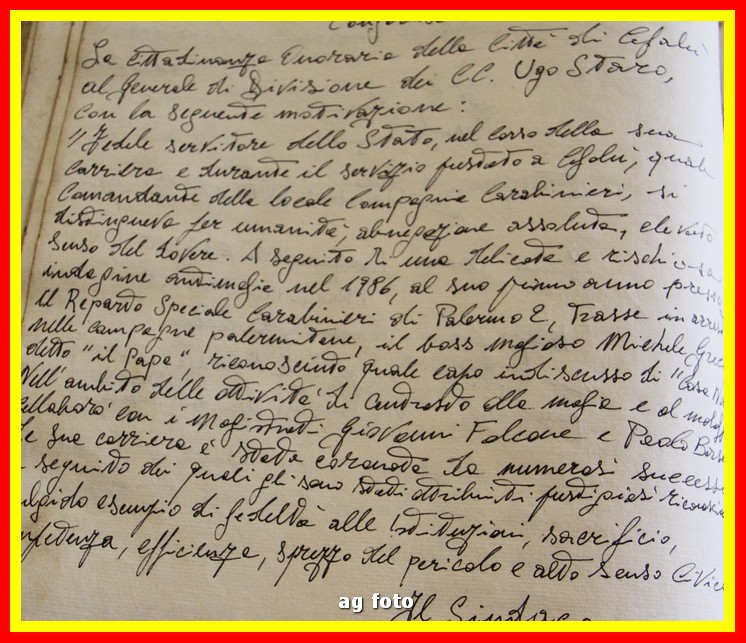 La cittadinanza Onoraria della Città di Cefalù
al Generale di Divisione dei CC. Ugo Staro,
con la seguente motivazione:
"Fedele servitore dello Stato, nel corso della sua
carriera e durante il servizio prestato a Cefalù, quale
Comandante della locale Compagnia Carabinieri, si
distingueva per umanità, abnegazione assoluta, elevato
senso del dovere. A seguito di una delicata e rischiosa
indagine antimafia nel 1986, al suo primo anno presso
il Reparto Speciale Carabinieri di Palermo 2, trasse in arres
nelle campagne palermitane, il boss mafioso Michele Grec
detto "il Papa", riconosciuto quale capo indiscusso di "Cosa N
Nell'ambito delle attività di contrasto alla mafia e al malaf
collaborò con i Magistrati Giovanni Falcone e Paolo Borse
sua carriera è stata coronata da numerosi success
seguito dei quali gli sono stati attribuiti prestigiosi riconos
lgido esempio di fedeltà alle Istituzioni, sacrificio,
mpetenza, efficienza, sprezzo del pericolo e alto senso civic
Il Sindaco
ag foto